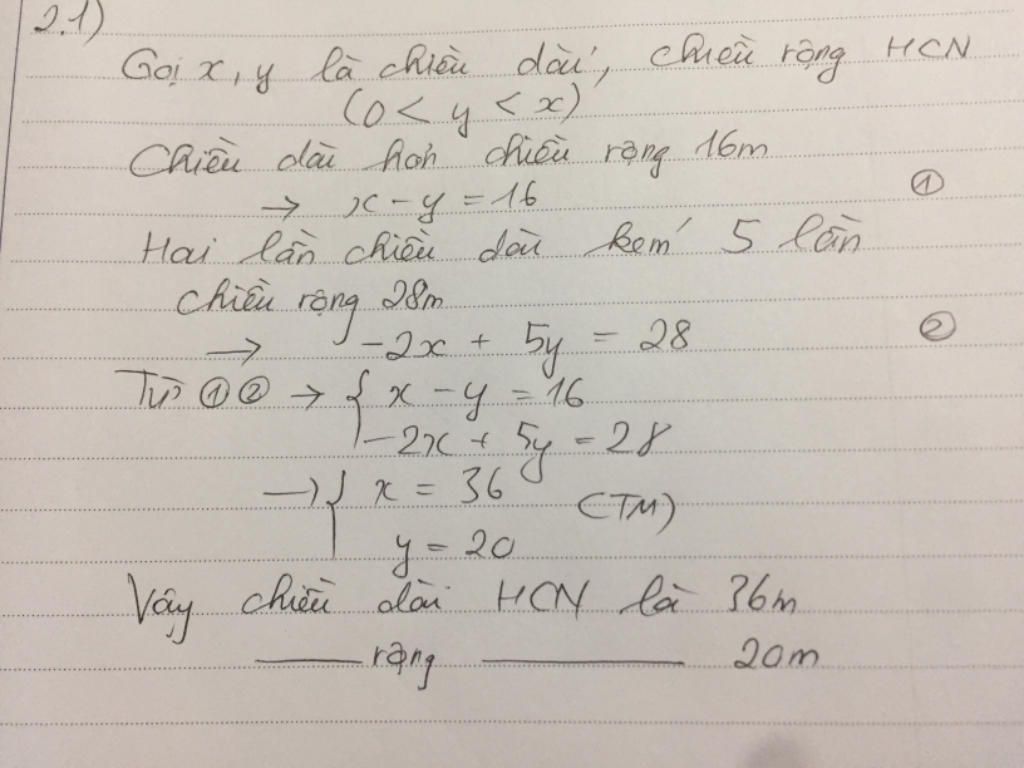 2.1)
Gọi x, y là chiều dài, chiều rộng HCN
(0 < y < x)
Chiều dài hơn chiều rộng 16m
→ x - y = 16 ①
Hai lần chiều dài kém 5 lần
chiều rộng 28m
→ -2x + 5y = 28 ②
Từ ① ② → { x - y = 16
-2x + 5y = 28
→ { x = 36
y = 20 (TM)
Vậy chiều dài HCN là 36m
—— rộng ———— 20m